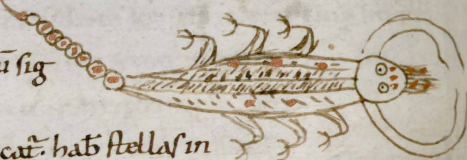 ū sig
cat̄. hab̄ stellas in